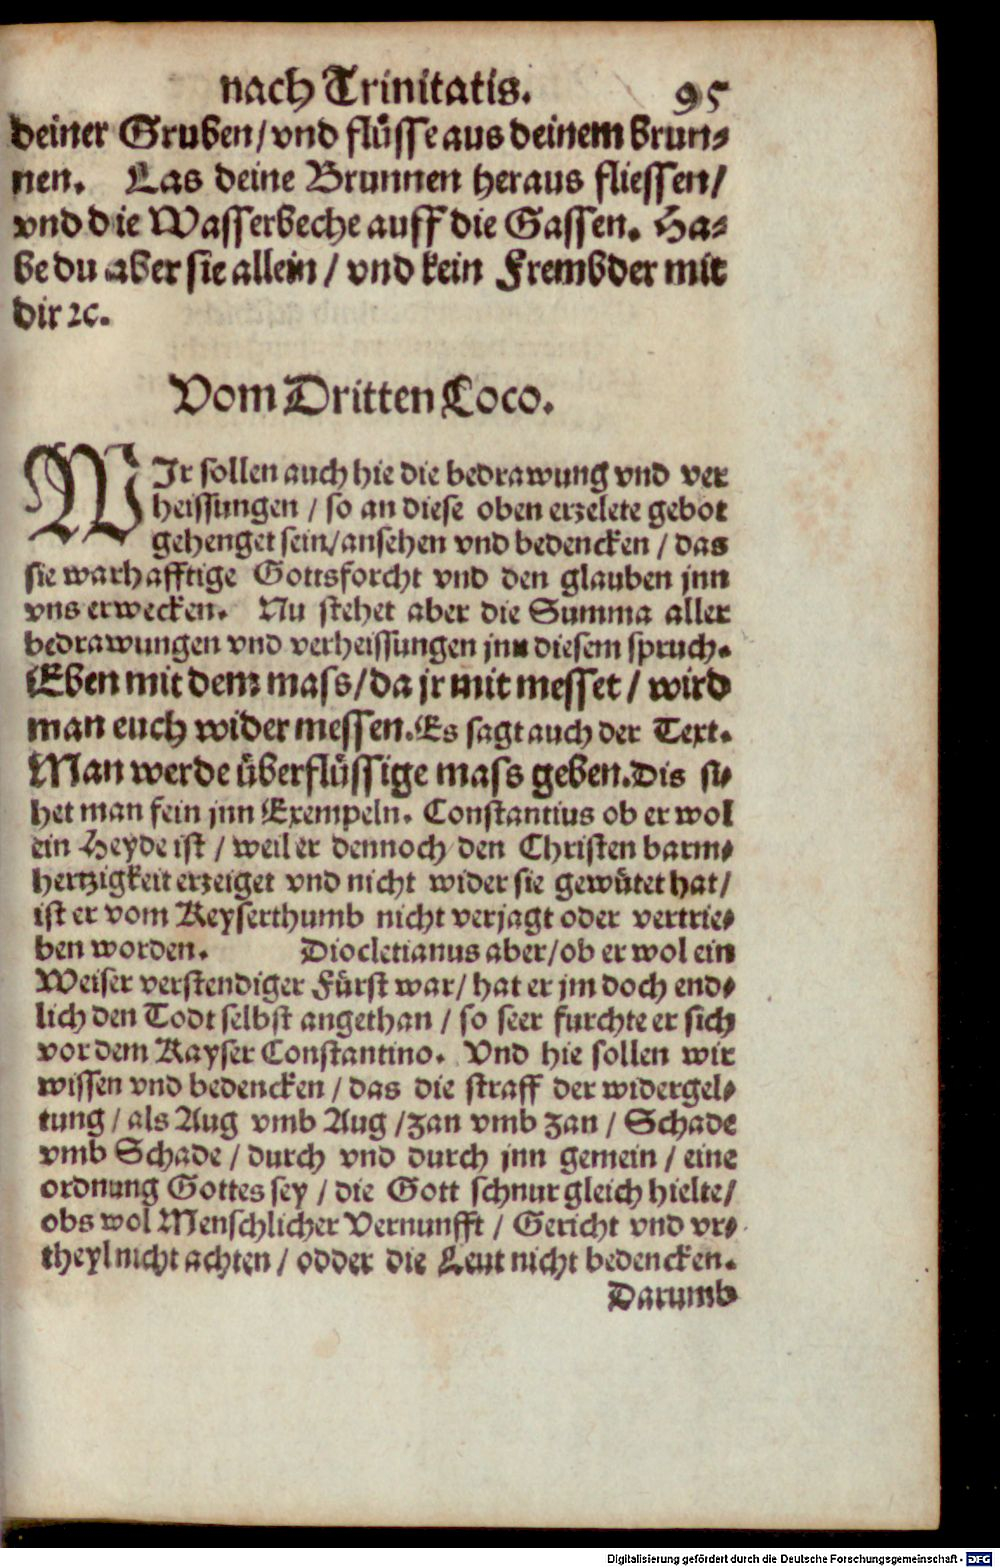 nach Trinitatis. 95
deiner Gruben/ vnd flüsse aus deinem brun⸗
nen. Las deine Brunnen heraus fliessen/
vnd die Wasserbeche auff die Gassen. Ha⸗
be du aber sie allein / vnd kein Frembder mit
dir ꝛc.
Vom Dritten Loco.
WIr sollen auch hie die bedrawung vnd ver
heissungen / so an diese oben erzelete gebot
gehenget sein/ ansehen vnd bedencken / das
sie warhafftige Gottsforcht vnd den glauben jnn
vns erwecken. Nu stehet aber die Summa aller
bedrawungen vnd verheissungen jnn diesem spruch.
Eben mit dem mass/ da jr mit messet / wird
man euch wider messen. Es sagt auch der Text.
Man werde überflüssige mass geben. Dis si⸗
het man fein jnn Exempeln. Constantius ob er wol
ein Heyde ist / weil er dennoch den Christen barm⸗
hertzigkeit erzeiget vnd nicht wider sie gewütet hat/
ist er vom Keyserthumb nicht verjagt oder vertrie⸗
ben worden. Diocletianus aber/ ob er wol ein
Weiser verstendiger Fürst war/ hat er jm doch end⸗
lich den Todt selbst angethan / so seer furchte er sich
vor dem Kayser Constantino. Vnd hie sollen wir
wissen vnd bedencken / das die straff der widergel⸗
tung / als Aug vmb Aug / zan vmb zan / Schade
vmb Schade / durch vnd durch jnn gemein / eine
ordnung Gottes sey / die Gott schnur gleich hielte/
obs wol Menschlicher Vernunfft / Gericht vnd vr⸗
theyl nicht achten / odder die Leut nicht bedencken.
Darumb
Digitalisierung gefördert durch die Deutsche Forschungsgemeinschaft - DFG